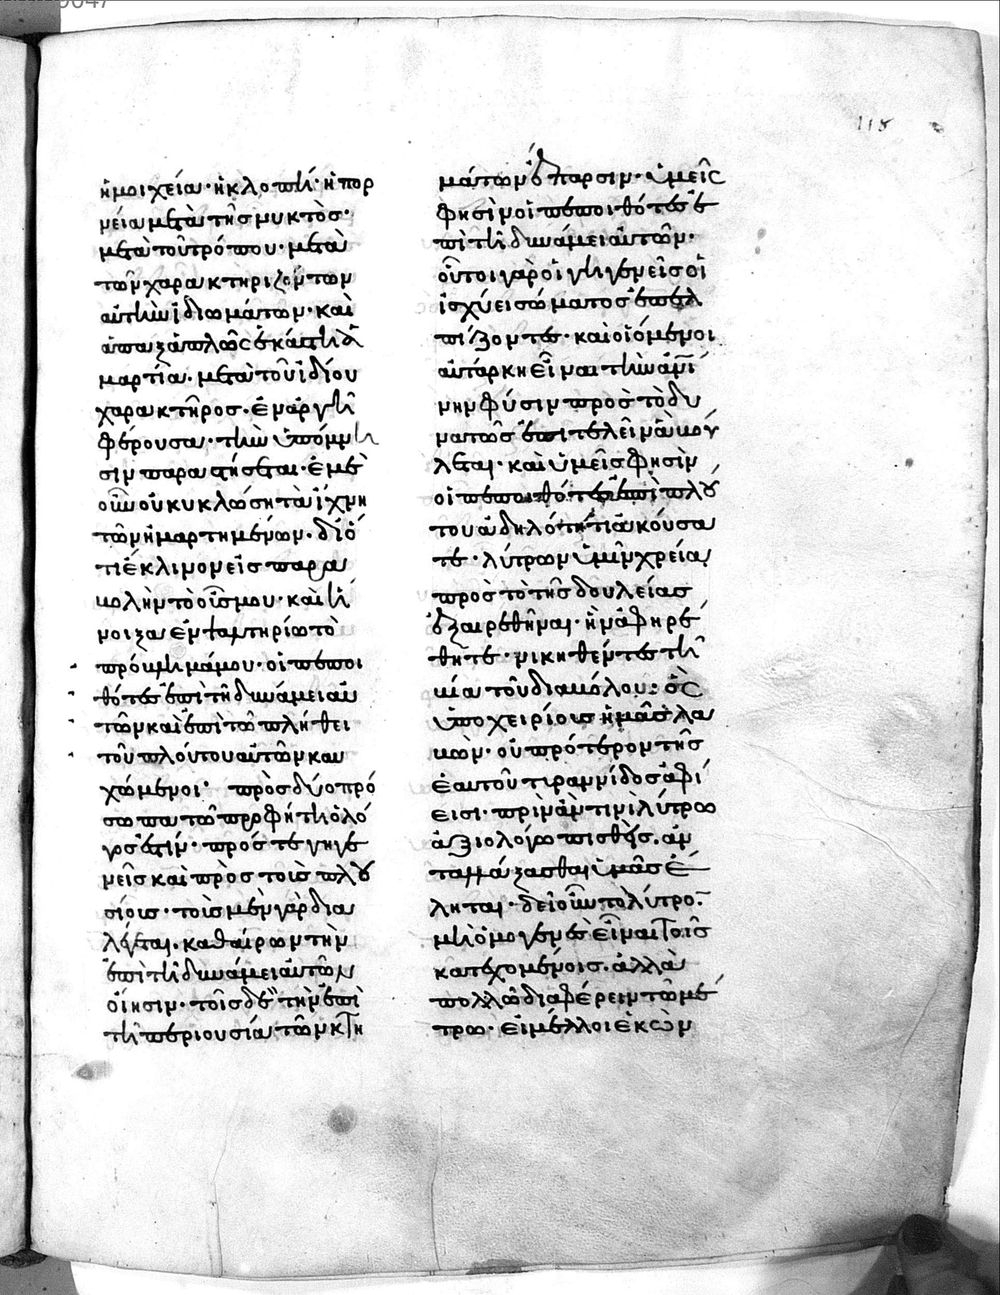 115
ἡμοιχεία· ἡκλοπή· ἡπορ
νεία μετὰ τῆς νυκτὸς·
μετὰ τοῦ τρόπου· μετὰ
τῶν χαρακτηριζόντων
αὐτὴν ἰδιωμάτων· καὶ
ἁπαξαπλῶς ἑκάστη ἁ
μαρτία. μετὰ τοῦ ἰδίου
χαρακτῆρος. ἐναργῆ
φέρουσα· τὴν ὑπόμνη
σιν παραστήσεται· ἐμὲ
οὖν οὐ κυκλώση τὰ ἴχνη
τῶν ἡμαρτημένων. διό
τι ἔκλινον εἰς παρα
βολὴν τὸ οὖς μου· καὶ ἤ
νοιξα ἐν ψαλτηρίω τὸ
πρόβλημά μου· οἱ πεποι
θότες ἐπὶ τῆ δυνάμει αὐ
τῶν καὶ ἐπὶ τῶ πλήθει
τοῦ πλούτου αὐτῶν καυ
χώμενοι· πρὸς δύο πρό
σωπα τῶ προφήτη ὁ λό
γος ἐστίν· πρός τε γηγε
νεῖς καὶ πρὸς τοὺς πλου
σίους· τοῖς μὲν γὰρ δια
λέγεται. καθαίρων τὴν
ἐπὶ τῆ δυνάμει αὐτῶν
οἴησιν· τοῖς δὲ τὴν ἐπὶ
τῆ περιουσία τῶν κτη
μάτων ἔπαρσιν· ὑμεῖς
φησὶν οἱ πεποιθότες ἐ
πὶ τῆ δυνάμει αὐτῶν·
οὗτοι γὰρ οἱ γηγενεῖς οἱ
ἰσχύει σώματος ἐπελ
πίζοντες· καὶ οἰόμενοι
αὐτάρκη εἶναι τὴν ἀνθρωπί
νην φύσιν πρὸς τὸ δυ
νατῶς ἐπιτελεῖν ἃ βού
λεται· καὶ ὑμεῖς φησὶν
οἱ πεποιθότες ἐπὶ πλού
του ἀδηλότητι ἀκούσα
τε· λύτρων ὑμῖν χρεία
πρὸς τὸ τῆς δουλείας
ἐξαιρεθῆναι· ἣν ἀφηρέ
θητε· νικηθέντες τῆ
βία τοῦ διαβόλου: ὃς
ὑποχειρίους ἡμᾶς λα
βὼν· οὐ πρότερον τῆς
ἑαυτοῦ τυραννίδος ἀφί
εισι· πρὶν ἄν τινι λύτρω
ἀξιολόγω πεισθεὶς. ἀν
ταλλάξασθαι ὑμᾶς ἕ
ληται· δεῖ οὖν τὸ λύτρον
μὴ ὁμογενὲς εἶναι τοῖς
κατεχομένοις. ἀλλὰ
πολλῶ διαφέρειν τῶ μέ
τρω· εἰ μέλλοι ἑκὼν